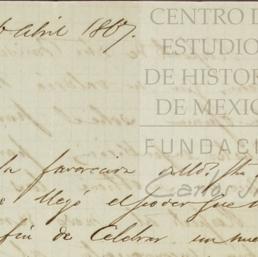 Abril 1867.
CENTRO D
ESTUDIO
DE HISTOR
DE MEXIC
FUNDACI
Carlos S
la favorecida
llegó el poder que
fin de Celebrar un nue